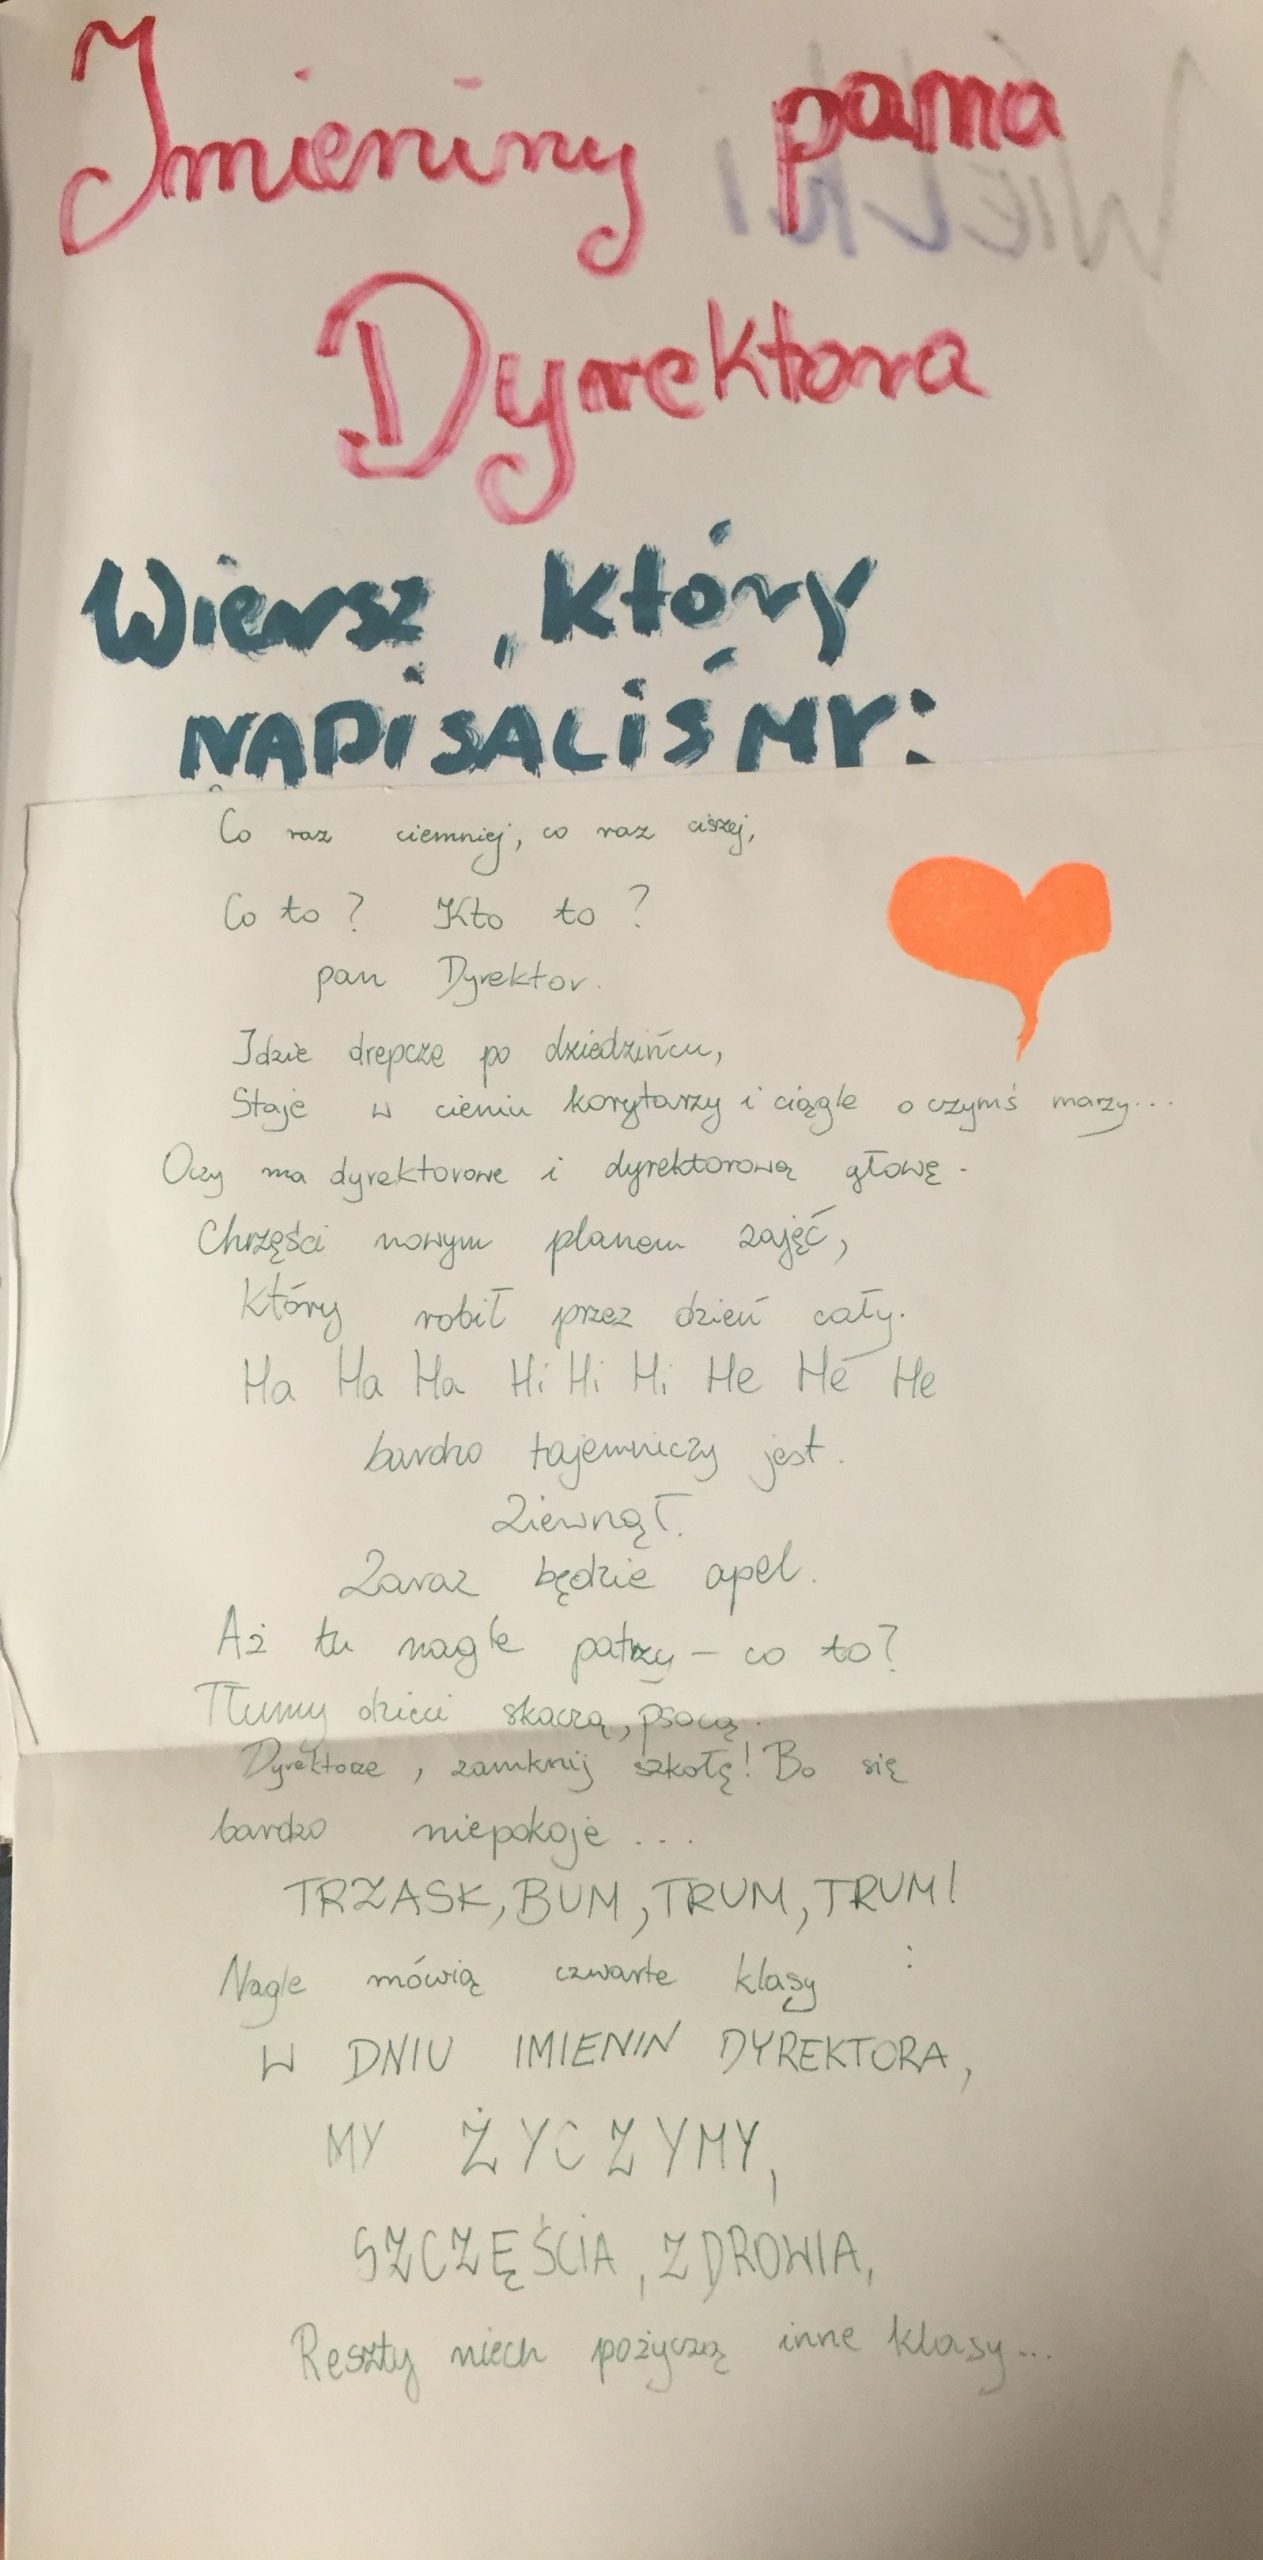 Imieniny pana
Dyrektora
Wiersz, który
NAPISALIŚMY:
Co raz ciemniej, co raz ciszej,
Co to? Kto to?
pan Dyrektor.
Idzie drepcze po dziedzińcu,
Staje w cieniu korytarzy i ciągle o czymś marzy...
Oczy ma dyrektorowe i dyrektorową głowę.
Chrzęści nowym planem zajęć,
Który robił przez dzień cały.
Ha Ha Ha Hi Hi Hi He He He
bardzo tajemniczy jest.
Ziewnął.
Zaraz będzie apel.
Aż tu nagle patrzy - co to?
Tłumy dzieci skaczą, psocą.
Dyrektorze, zamknij szkołę! Bo się
bardzo niepokoję...
TRZASK, BUM, TRUM, TRUM!
Nagle mówią czwarte klasy :
W DNIU IMIENIN DYREKTORA,
MY ŻYCZYMY,
SZCZĘŚCIA, ZDROWIA,
Reszty niech pożyczą inne klasy...
WIELKI